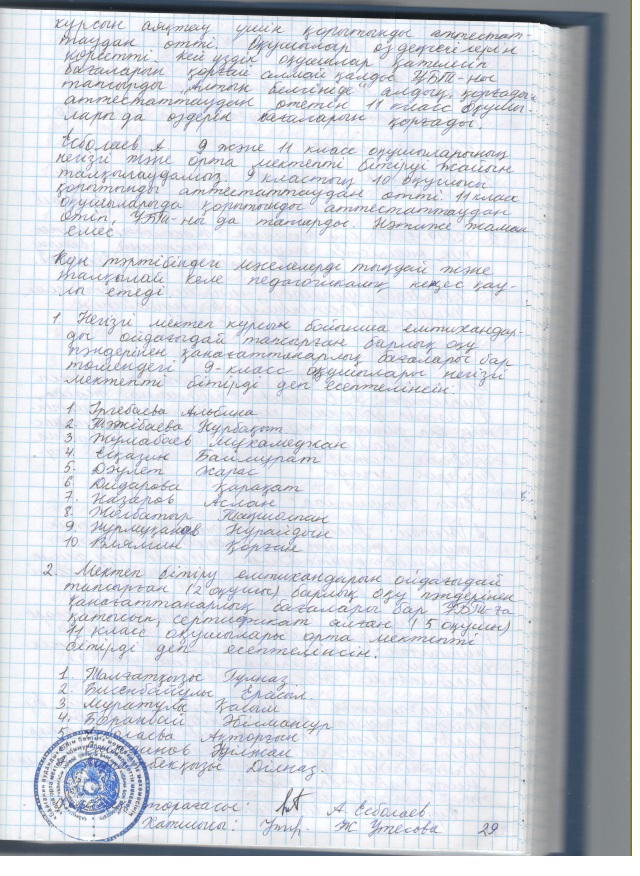 курсын аяқтау үшін қорытынды аттестат-
таудан өтті. Оқушылар өз деңгейлерін
көрсетті. Кей үздік оқушылар қателесіп
бағаларын қорғай алмай қалды. ҰБТ-ны
тапсырды „Алтын белгіні де" алдық, қорғады.
аттестаттаудан өтетін 11-класс оқушы-
лары да өздерін бағаларын қорғады.
Есболаев А 9 және 11 класс оқушыларының
негізгі және орта мектепті бітіруі жайын
талқылаудамыз. 9 кластың 10 оқушысы
қорытынды аттестаттаудан өтті. 11 класс
оқушылары да қорытынды аттестаттаудан
өтіп, ҰБТ-ны да тапсырды. Нәтиже жаман
емес.
Күн тәртібіндегі мәселелерді тыңдай және
талқылай келе педагогикалық кеңес қау-
лы етеді.
1. Негізгі мектеп курсын бойынша емтихандар-
ды ойдағыдай тапсырған барлық оқу
пәндерінен қанағаттанарлық бағалары бар
төмендегі 9-класс оқушылары негізгі
мектепті бітірді деп есептелінсін.
1. Іргебаева Альбина
2 Тәжібаева Нурбақыт
3 Жумабаев Мухамеджан
4. Есқазин Баймурат
5. Дәулет Харас
6 Айдарова Қарақат
7. Назаров Аслан
8. Жолбатыр
9 Нурмуқанов Нурайдын
10 Қорған
2. Мектеп бітіру емтихандарын ойдағыдай
тапсырған (2 оқушы) барлық оқу пәндерінен
қанағаттанарлық бағалары бар ҰБТ-ға
қатысып, сертификат алған (5 оқушы)
11 класс оқушылары орта мектепті
бітірді деп есептелінсін.
1. Талғатқызы Гулназ
2. Бисенбайулы Ерасыл.
3. Муратулы Қасым
4. Боранбай Әбілмансур
5. Ақторғын
Әділжан
бекқызы Ділназ.
төрағасы: А Есболаев.
хатшысы: Ж Утесова 29